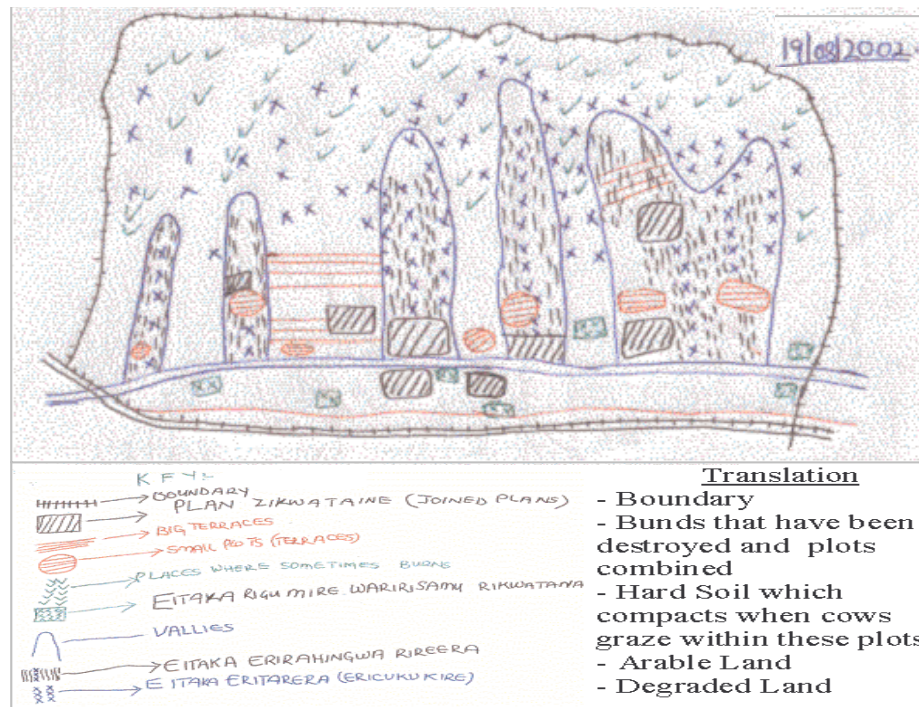 19/08/2002
KEY:
BOUNDARY
PLAN ZIKWATAINE (JOINED PLANS)
BIG TERRACES
SMALL PLOTS (TERRACES)
PLACES WHERE SOMETIMES BURNS
EITAKA RIGUMIRE WARIRISAMU RIKWATANA
VALLIES
EITAKA ERIRAHINGWA RIREERA
EITAKA ERITARERA (ERICUKUKIRE)
Translation
- Boundary
- Bunds that have been
destroyed and plots
combined
- Hard Soil which
compacts when cows
graze within these plots
- Arable Land
- Degraded Land